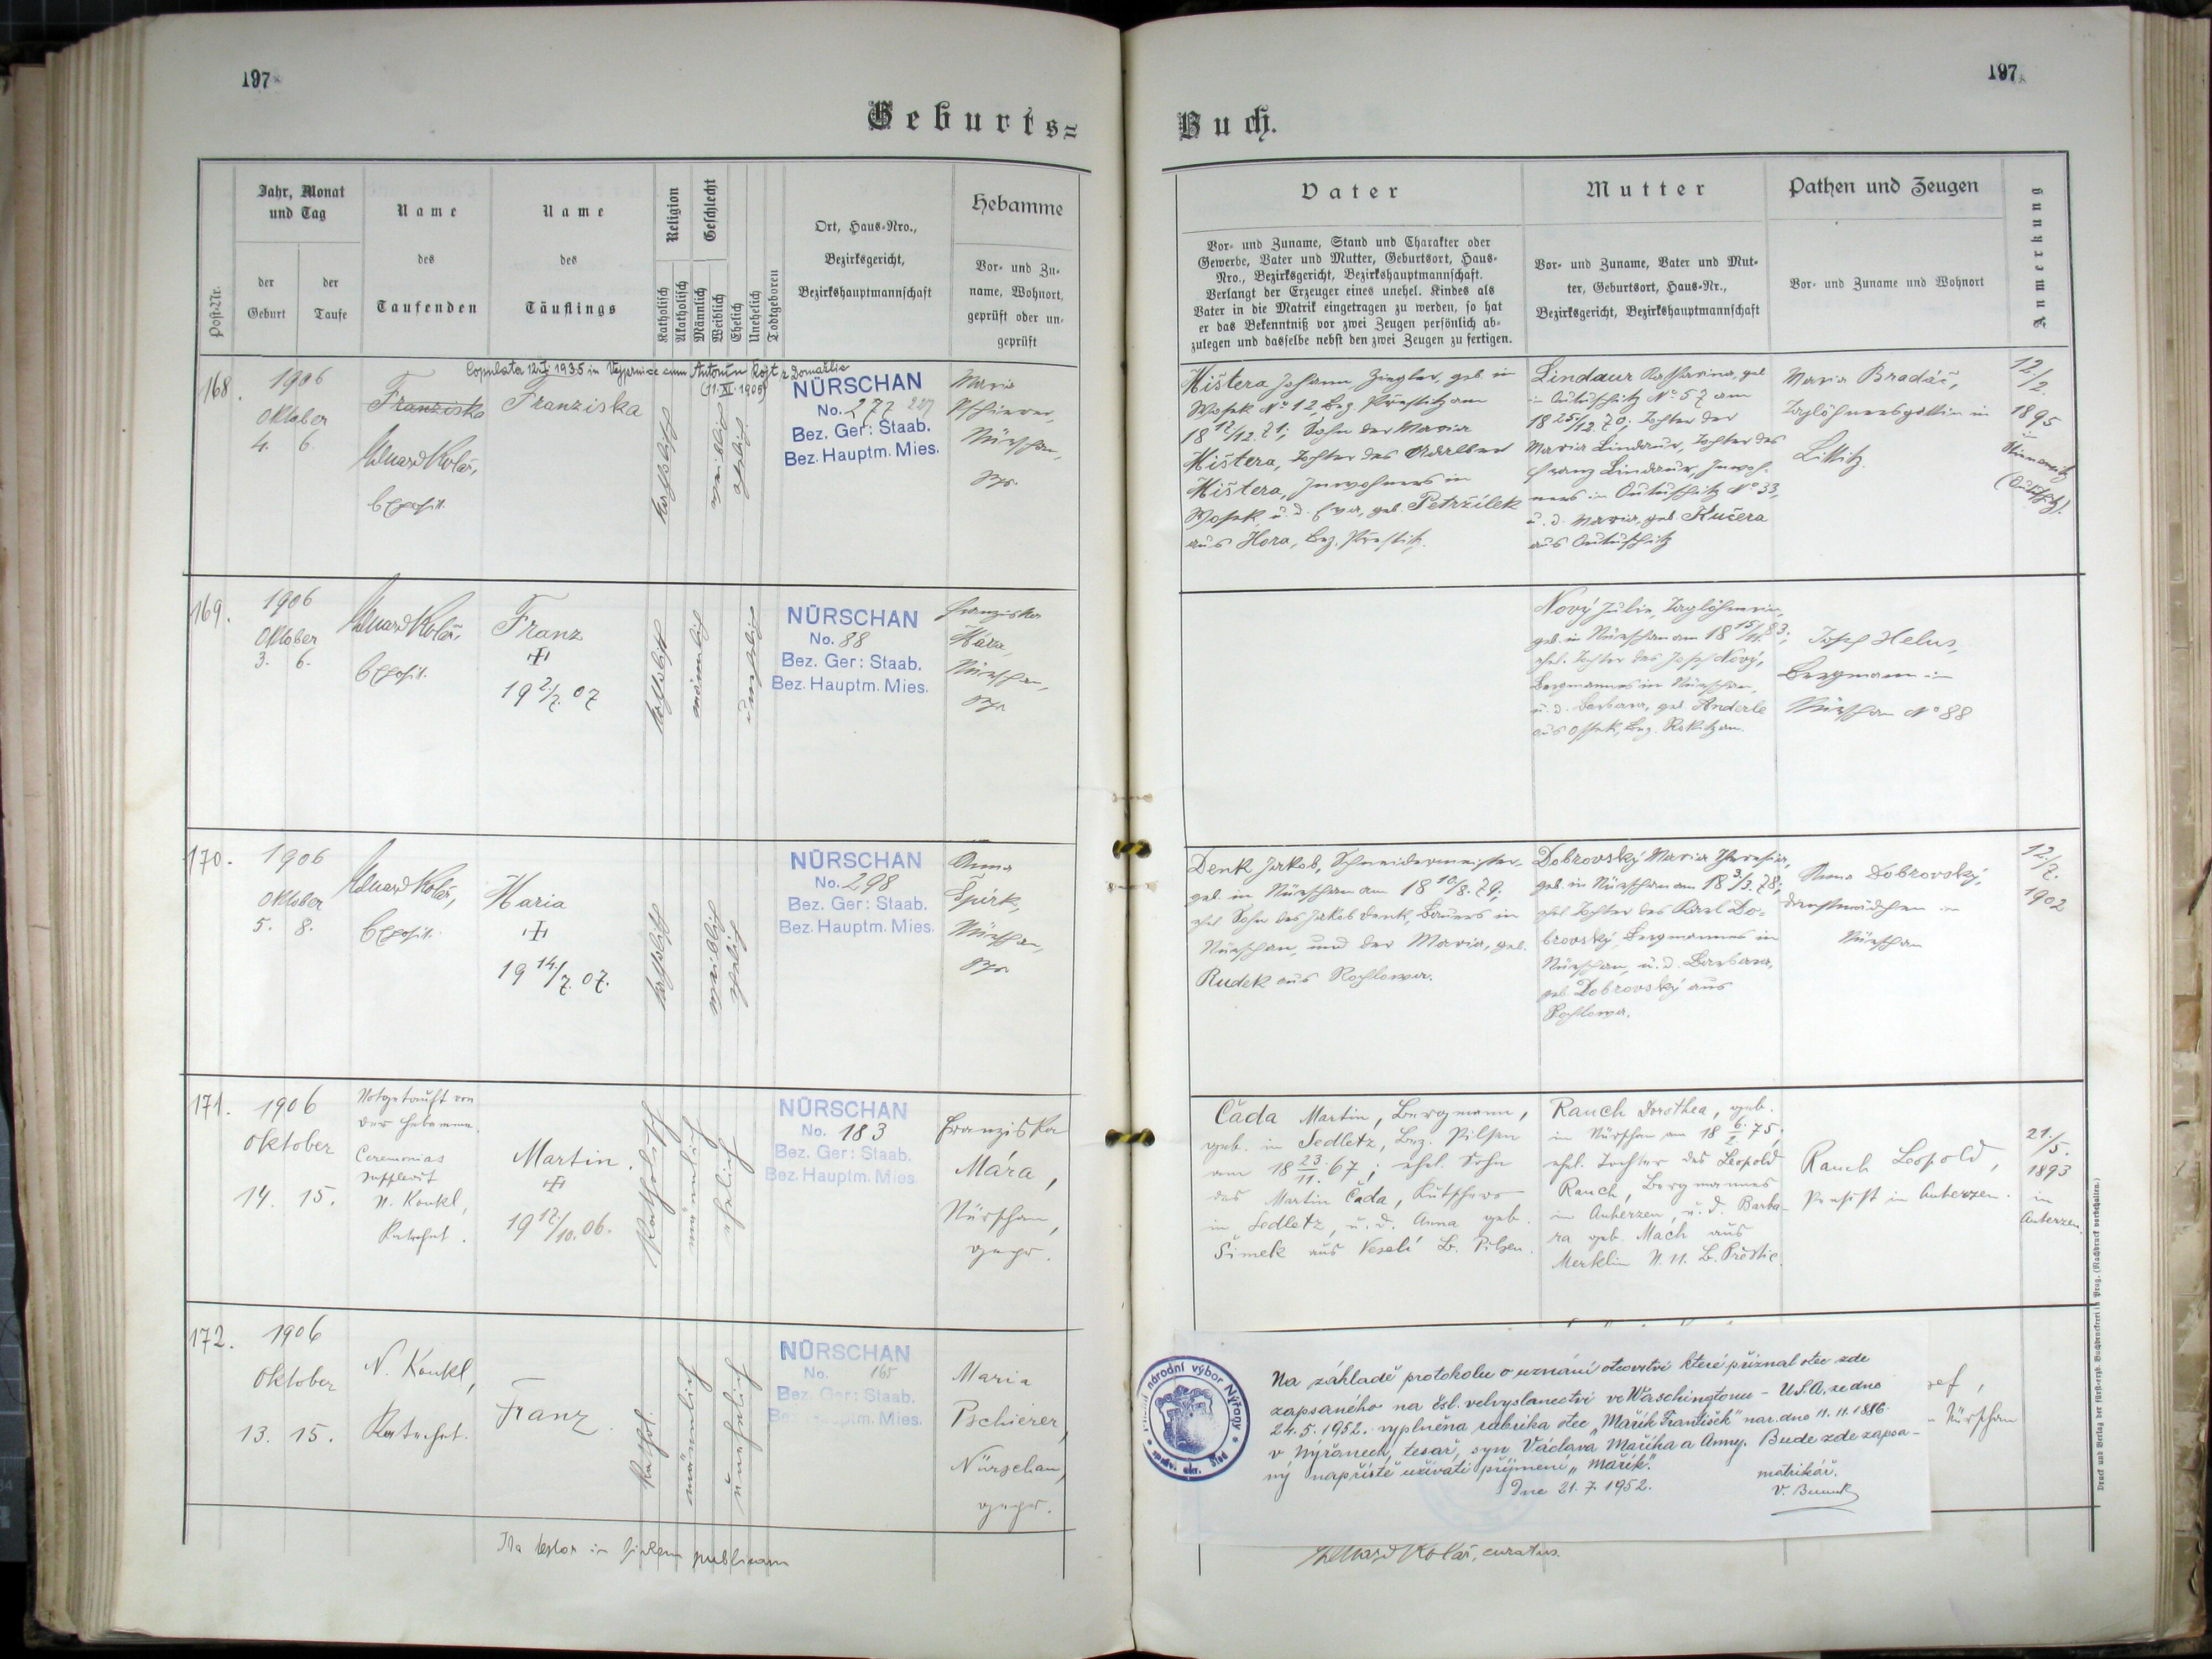 197
197
Geburts=
Buch.
Post-Nr.
Jahr, Monat
und Tag
der
Geburt
der
Taufe
Name
des
Taufenden
Name
des
Täuflings
Religion
Katholisch
Akatholisch
Geschlecht
Männlich
Weiblich
Ehelich
Unehelich
Todtgeboren
Ort, Haus-Nro.,
Bezirksgericht,
Bezirkshauptmannschaft
Hebamme
Vor- und Zu-
name, Wohnort,
geprüft oder un-
geprüft
Vater
Vor- und Zuname, Stand und Charakter oder
Gewerbe, Vater und Mutter, Geburtsort, Haus-
Nro., Bezirksgericht, Bezirkshauptmannschaft.
Verlangt der Erzeuger eines unehel. Kindes als
Vater in die Matrik eingetragen zu werden, so hat
er das Bekenntniß vor zwei Zeugen persönlich ab-
zulegen und dasselbe nebst den zwei Zeugen zu fertigen.
Mutter
Vor- und Zuname, Vater und Mut-
ter, Geburtsort, Haus-Nr.,
Bezirksgericht, Bezirkshauptmannschaft
Pathen und Zeugen
Vor- und Zuname und Wohnort
Anmerkung
Copulata 12. 1935 in Vejprnice cum Antonín z Domažlic
(11. XI. 1905)
168.
1906
Oktober
4. 6.
Franziska
Eduard Kolář,
Exposit.
Franziska
katholisch
weiblich
ehelich
NÜRSCHAN
No. 277 227
Bez. Ger: Staab.
Bez. Hauptm. Mies.
Maria
Pschierer,
Nürschan,
gpr.
Mištera Johann, Ziegler, geb. in
Wosek No 12, Bez. Přestitz am
18 12/12. 71; Sohn der Maria
Mištera, Tochter des Adalbert
Mištera, Inwohners in
Wosek, u. d. Eva, geb. Petržílek
aus Hora, Bez. Přestitz.
Lindaur Katharina, geb.
in Auttuschitz No 57 am
18 25/12. 70; Tochter der
Maria Lindaur, Tochter des
Franz Lindaur, Inwoh-
ners in Auttuschitz No 33,
u. d. Maria, geb. Kučera
aus Auttuschitz
Maria Bradáč,
Taglöhnersgattin in
Littitz.
12/2.
1895
in
169.
1906
Oktober
3. 6.
Eduard Kolář,
Exposit.
Franz
19 2/7. 07
katholisch
männlich
unehelich
NÜRSCHAN
No. 88
Bez. Ger: Staab.
Bez. Hauptm. Mies.
Franziska
Mára,
Nürschan,
gpr.
Nový Julie, Taglöhnerin,
geb. in Nürschan am 18 15/11. 83;
ehel. Tochter des Josef Nový,
Bergmannes in Nürschan,
u. d. Barbara, geb. Anderle
aus Ossek, Bez. Rokitzan.
Josef Helus,
Bergmann in
Nürschan No 88
170.
1906
Oktober
5. 8.
Eduard Kolář,
Exposit.
Maria
19 14/7. 07.
katholisch
weiblich
ehelich
NÜRSCHAN
No. 298
Bez. Ger: Staab.
Bez. Hauptm. Mies.
Anna
Špirk,
Nürschan,
gpr.
Denk Jakob, Schneidermeister,
geb. in Nürschan am 18 10/8. 79;
ehel. Sohn des Jakob Denk, Bauers in
Nürschan, und der Maria, geb.
Rudek aus Rochlowa.
Dobrovský Maria Theresia,
geb. in Nürschan am 18 3/3. 78;
ehel. Tochter des Karl Do-
brovský, Bergmannes in
Nürschan, u. d. Barbara,
geb. Dobrovský aus
Rochlowa.
Anna Dobrovský,
Dienstmädchen in
Nürschan
12/7.
1902
171.
1906
Oktober
14. 15.
Notgetauft von
der Hebamme.
Ceremonias
supplevit
N. Konkl,
Katechet.
Martin.
19 17/10. 06.
Katholisch
männlich
ehelich
NÜRSCHAN
No. 183
Bez. Ger: Staab.
Bez. Hauptm. Mies.
Franziska
Mára,
Nürschan,
gepr.
Čada Martin, Bergmann,
geb. in Sedletz, Bez. Pilsen
am 18 23/11. 67; ehel. Sohn
des Martin Čada, Kutschers
in Sedletz, u. d. Anna geb.
Šimek aus Veselí B. Pilsen.
Rauch Dorothea, geb.
in Nürschan am 18 6/2. 75;
ehel. Tochter des Leopold
Rauch, Bergmannes
in Auherzen, u. d. Barba-
ra geb. Mach aus
Merklin N. 11. B. Přestic.
Rauch Leopold,
in Auherzen.
21./5.
1893
in
Auherzen.
172.
1906
Oktober
13. 15.
N. Konkl,
Katechet.
Franz.
Kathol.
männlich
unehelich
NÜRSCHAN
No. 165
Bez. Ger: Staab.
Bez. Hauptm. Mies.
Maria
Pschierer,
Nürschan,
gepr.
národní výbor Nýřany
Na základě protokolu o uznání otcovství které přiznal otec zde
zapsaného na čsl. velvyslanectví ve Waschingtonu - U.S.A. ze dne
24. 5. 1952. vyplněna rubrika otec „Mařík František" nar. dne 11. 11. 1886
v Nýřanech, tesař, syn Václava Maříka a Anny. Bude zde zapsa-
ný napříště užívati příjmení „Mařík".
Dne 21. 7. 1952.
matrikář.
ef,
Nürschan
Eduard Kolář, curatus.
Druck und Verlag der fürst-erzb. Buchdruckerei in Prag. (Nachdruck vorbehalten.)